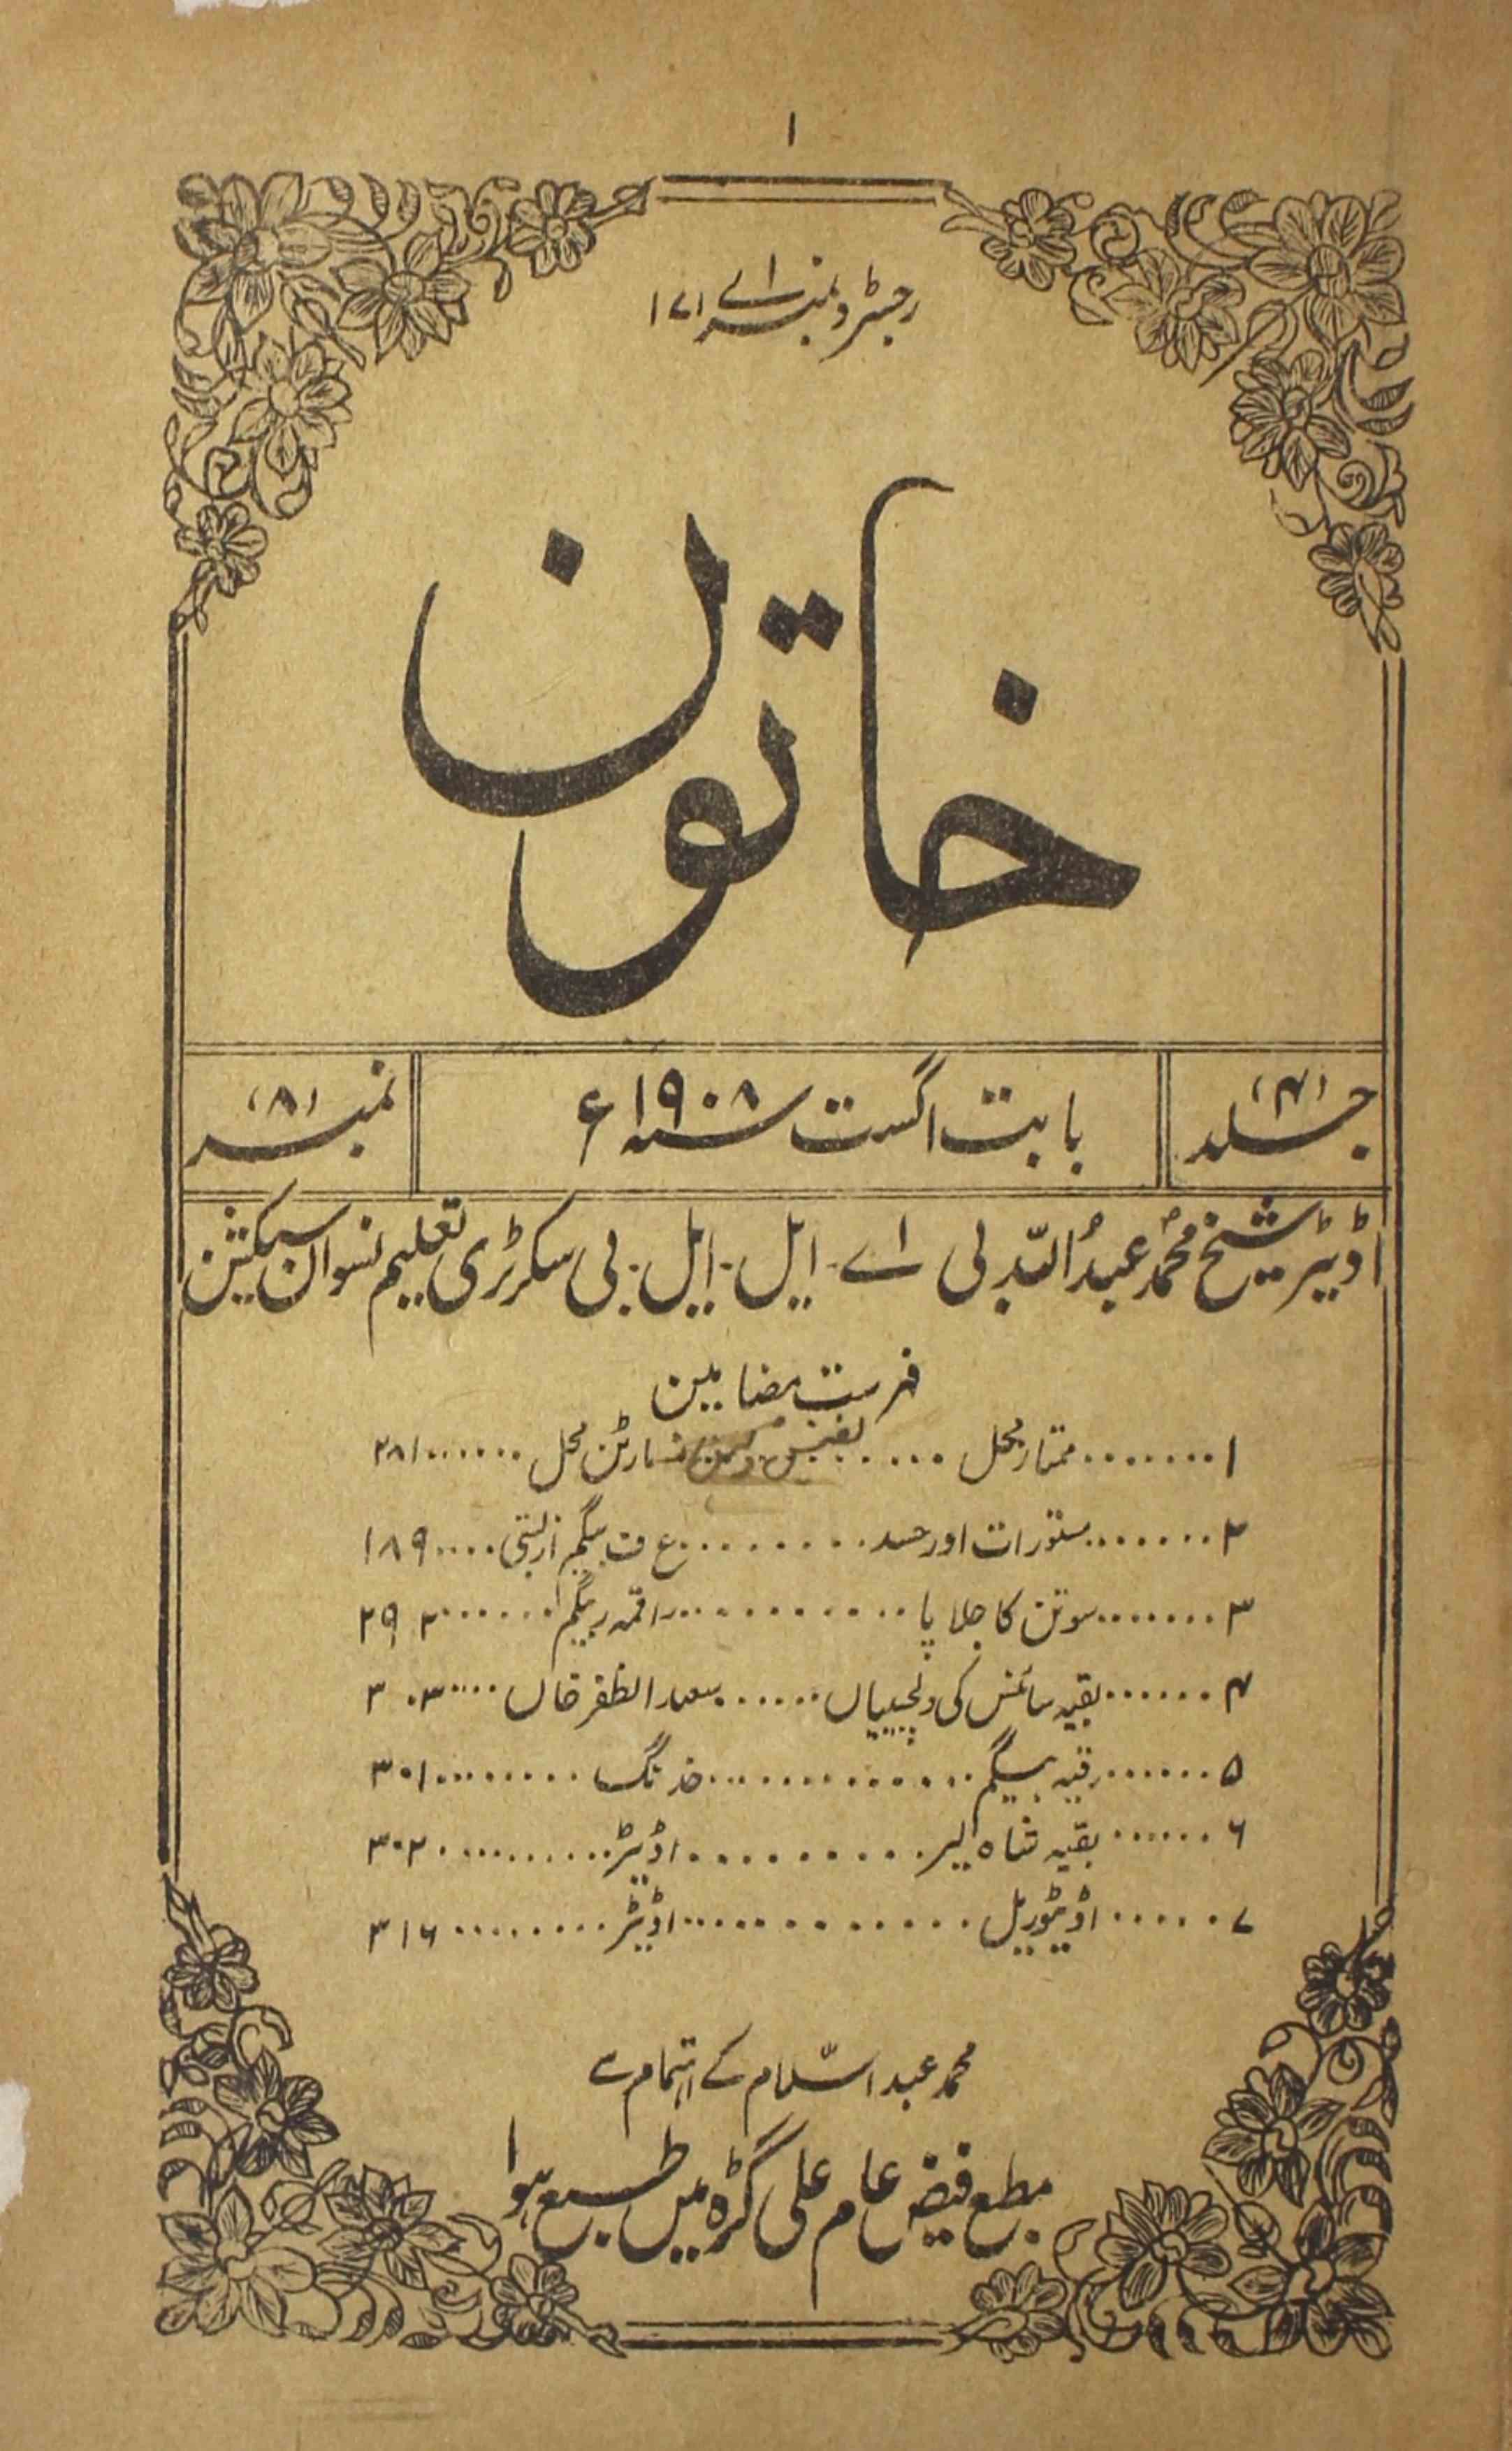 ۱
رجسٹرڈ نمبر اے ۱۷۱
خاتون
جلد (۴)
بابت اگست سنہ ۱۹۰۸ء
نمبر (۸)
اڈیٹر شیخ محمد عبداللہ بی اے۔ ایل۔ ایل۔ بی سکرٹری تعلیم نسواں سیکشن
فہرست مضامین
۱........ممتاز محل .... نفیس دلہن محل ......۲۸۱
۲.......مستورات اور حسد........ع ف بیگم از بستی....۱۸۹
۳.......سوتن کا جلاپا...........راقمہ ر بیگم.......۲۹۲
۴......بقیہ سائنس کی دلچسپیاں......سعد الظفر خاں....۳۰۳
۵......رقیہ بیگم.............خدنگ........۳۰۱
۶......بقیہ شاہ لیر..........اڈیٹر..........۳۰۲
۷......اڈیٹوریل.............اڈیٹر........۳۱۶
محمد عبدالسلام کے اہتمام سے
مطبع فیض عام علی گڑہ میں طبع ہوا